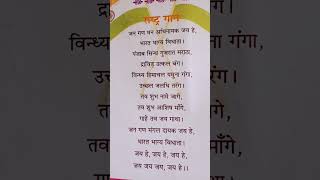 राष्ट्र गान
जन गण मन अधिनायक जय हे,
भारत भाग्य विधाता।
पंजाब सिन्ध गुजरात मराठा,
द्राविड़ उत्कल बंग।
विन्ध्य हिमाचल यमुना गंगा,
उच्छल जलधि तरंग।
तव शुभ नामे जागे,
तव शुभ आशिष माँगे,
गाहे तव जय गाथा।
जन गण मंगल दायक जय हे,
भारत भाग्य विधाता।
जय हे, जय हे, जय हे,
जय जय जय, जय हे।।